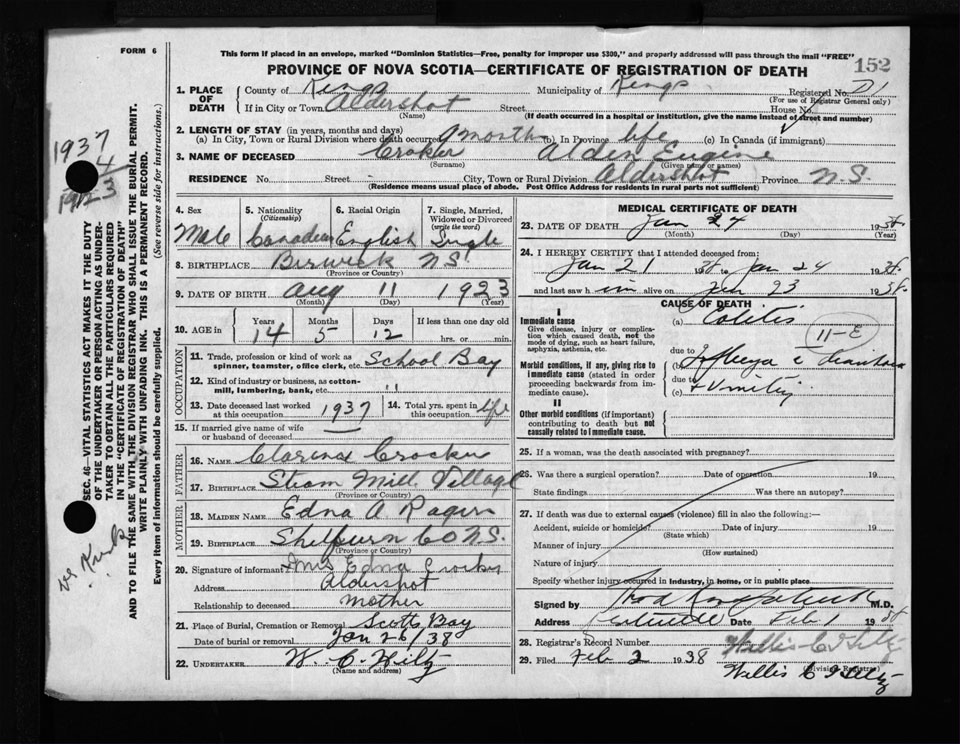 FORM 6
This form if placed in an envelope, marked "Dominion Statistics—Free, penalty for improper use $300," and properly addressed will pass through the mail "FREE"
152
PROVINCE OF NOVA SCOTIA—CERTIFICATE OF REGISTRATION OF DEATH
1. PLACE OF DEATH County of Kings Municipality of Kings Registered No.
(For use of Registrar General only)
If in City or Town Aldershot Street House No.
(Name) (If death occurred in a hospital or institution, give the name instead of street and number)
2. LENGTH OF STAY (in years, months and days)
(a) In City, Town or Rural Division where death occurred 9 months (b) In Province life (c) In Canada (if immigrant)
3. NAME OF DECEASED Croker Alden Eugine
(Surname) (Given name or names)
RESIDENCE No. Street City, Town or Rural Division Aldershot Province N.S.
(Residence means usual place of abode. Post Office Address for residents in rural parts not sufficient)
4. Sex Male
5. Nationality (Citizenship) Canadian
6. Racial Origin English
7. Single, Married, Widowed or Divorced (write the word) Single
8. BIRTHPLACE Berwick NS
(Province or Country)
9. DATE OF BIRTH Aug 11 1923
(Month) (Day) (Year)
10. AGE in Years Months Days If less than one day old
14 5 12 hrs. or min.
OCCUPATION
11. Trade, profession or kind of work as spinner, teamster, office clerk, etc. School Boy
12. Kind of industry or business, as cotton-mill, lumbering, bank, etc. "
13. Date deceased last worked at this occupation 1937
14. Total yrs. spent in this occupation life
15. If married give name of wife or husband of deceased
FATHER
16. NAME Crocker
17. BIRTHPLACE Steam Mill Village
(Province or Country)
MOTHER
18. MAIDEN NAME Edna A Rogers
19. BIRTHPLACE Shelburn CO N.S.
(Province or Country)
20. Signature of informant Mrs Edna Crocker
Address Aldershot
Relationship to deceased Mother
21. Place of Burial, Cremation or Removal Scotts Bay
Date of burial or removal Jan 26/38
22. UNDERTAKER W. C. Hiltz
MEDICAL CERTIFICATE OF DEATH
23. DATE OF DEATH Jan 24 1938
(Month) (Day) (Year)
24. I HEREBY CERTIFY that I attended deceased from:
Jan 21 1938 to Jan 24 1938.
and last saw him alive on 23 1938.
CAUSE OF DEATH
I
Immediate cause (a) Colitis
Give disease, injury or complication which caused death, not the mode of dying, such as heart failure, asphyxia, asthenia, etc.
11-E
due to
Morbid conditions, if any, giving rise to immediate cause (stated in order proceeding backwards from immediate cause).
(b)
due to
(c)
II
Other morbid conditions (if important) contributing to death but not causally related to immediate cause.
25. If a woman, was the death associated with pregnancy?
26. Was there a surgical operation? Date of operation 19
State findings Was there an autopsy?
27. If death was due to external causes (violence) fill in also the following:—
Accident, suicide or homicide? Date of injury 19
(State which)
Manner of injury
(How sustained)
Nature of injury
Specify whether injury occurred in industry, in home, or in public place
Signed by M.D.
Address Date Feb 1 1938
28. Registrar's Record Number
29. Filed Feb 2 1938 Willis C Hiltz
(Division Registrar)
SEC. 46—VITAL STATISTICS ACT MAKES IT THE DUTY OF THE UNDERTAKER OR PERSON ACTING AS UNDERTAKER TO OBTAIN ALL THE PARTICULARS REQUIRED IN THE "CERTIFICATE OF REGISTRATION OF DEATH" AND TO FILE THE SAME WITH THE DIVISION REGISTRAR WHO SHALL ISSUE THE BURIAL PERMIT.
WRITE PLAINLY WITH UNFADING INK. THIS IS A PERMANENT RECORD.
Every item of information should be carefully supplied. (See reverse side for instructions.)
1937
4
1923